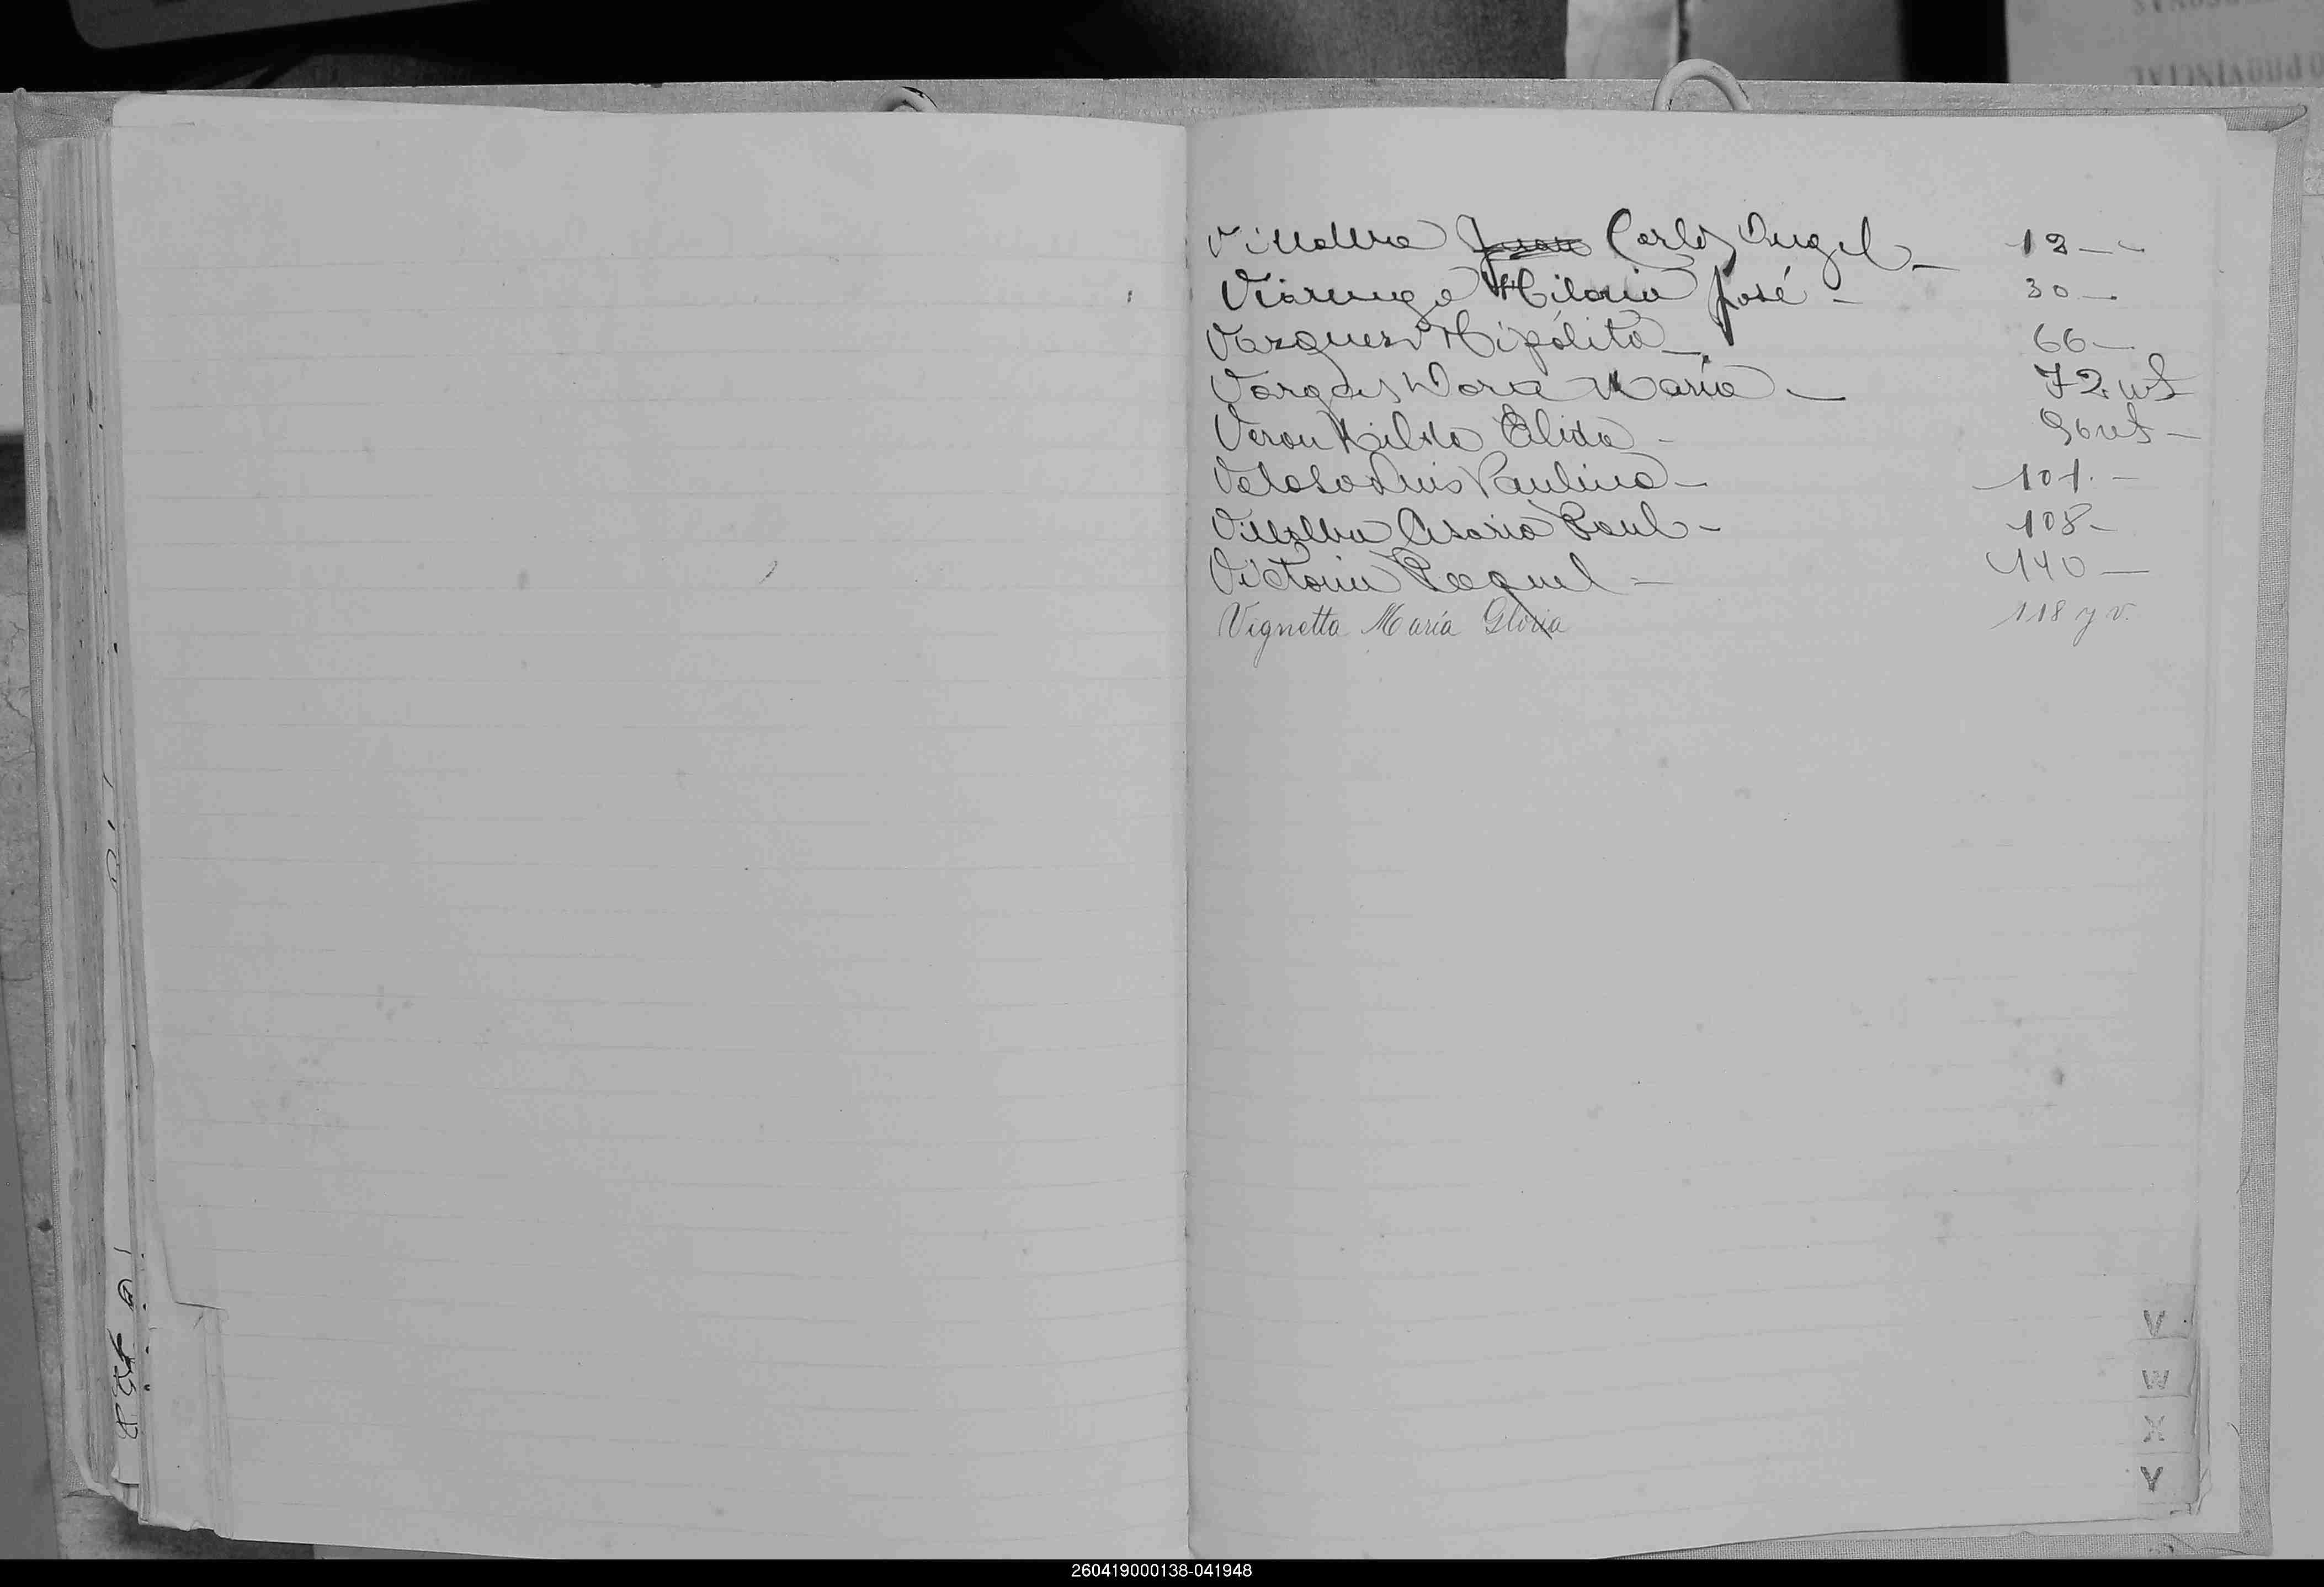 Villalba Juan Carlos Angel - 12 -
Viarengo Hilario José - 30 -
Vazquez Hipólito - 66 -
Vargas Dora María - 72. vt
Veron Hilda Elida - 96 vt -
Veloso Luis Paulino - 101. -
Villalba Cesario Raul - 108 -
Victoria Raquel - 140 -
Vignetta María Gloria 118 y v.
V
W
X
Y
260419000138-041948